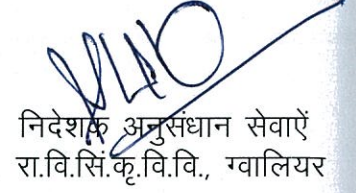 निदेशक अनुसंधान सेवाऐं
रा.वि.सिं.कृ.वि.वि., ग्वालियर